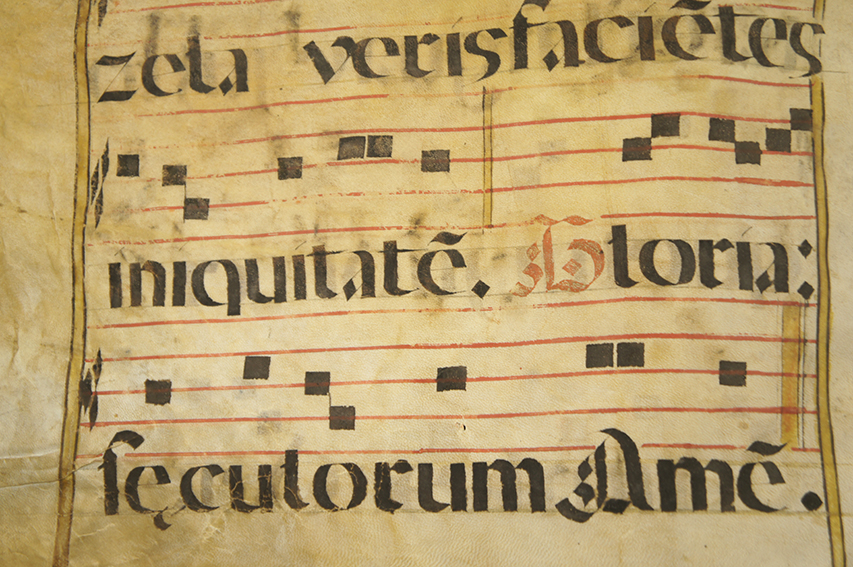 zela verisfaciẽtes
iniquitatẽ. Gloria:
sęculorum Amẽ.